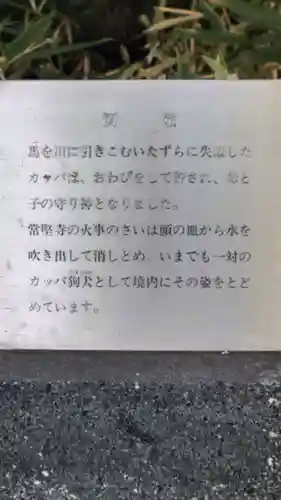 馬を川に引きこむいたずらに失敗した
カッパは、おわびをして許され、母と
子の守り神となりました。
常堅寺の火事のさいは頭の皿から水を
吹き出して消しとめ、いまでも一対の
カッパ狗犬として境内にその姿をとど
めています。